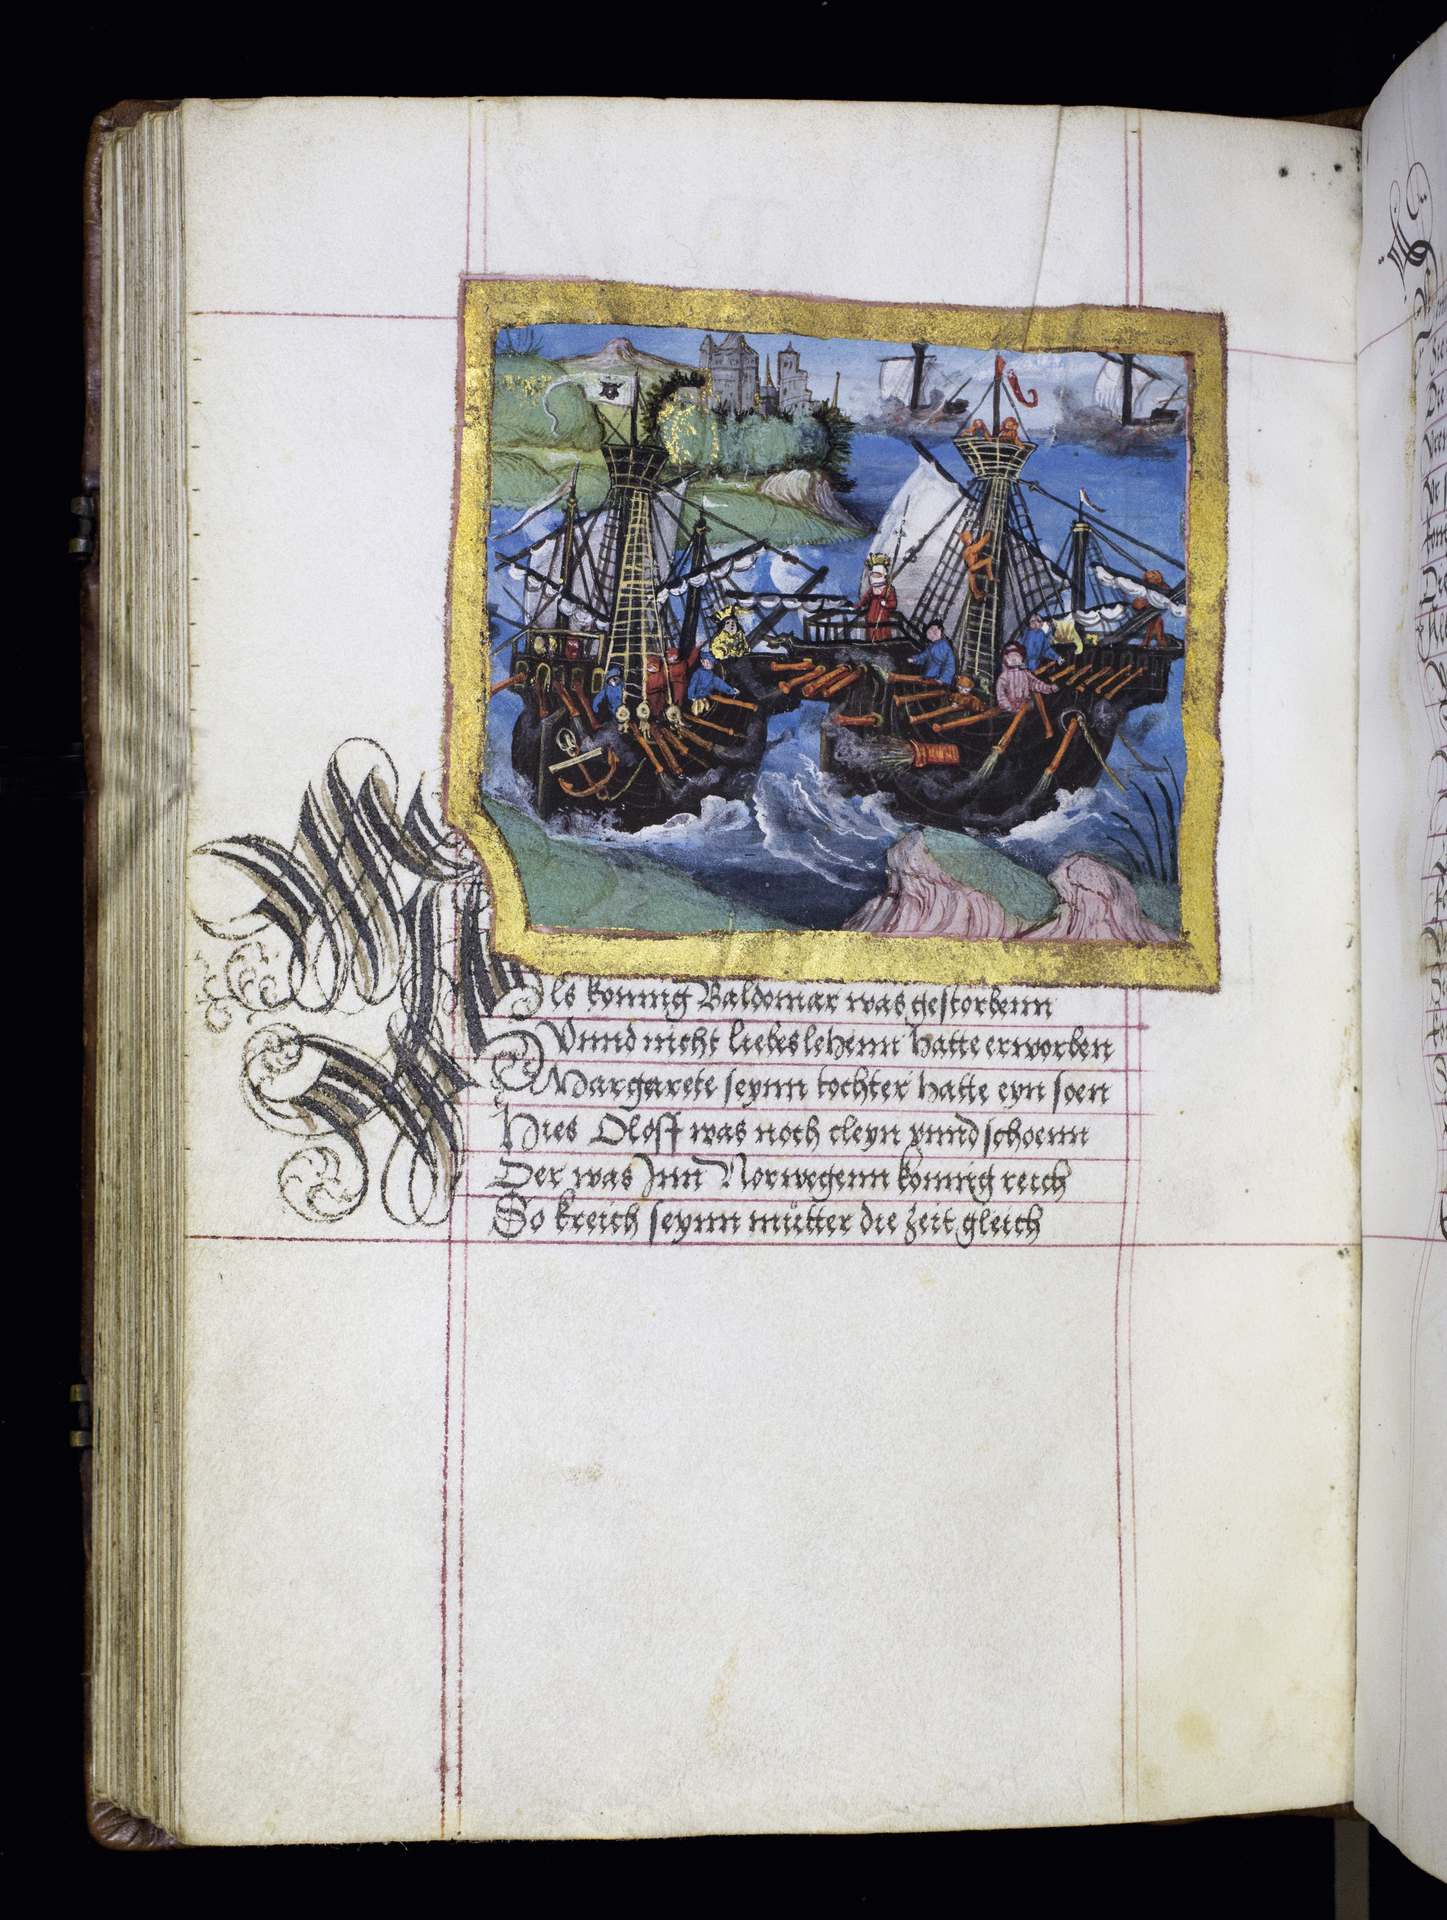 Als konnig Waldomar was gestorbenn
Vnnd nicht liebeslehenn hatte erworben
Margarete seynn tochter hatte eyn soen
Hies Oloff was noch cleyn vnnd schoenn
Der was Jnn Norwegenn konnig reich
So kreich seynn mutter die zeit gleich